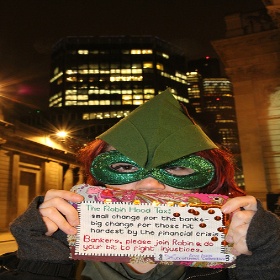 The Robin Hood Tax:
small change for the banks-
big change for those hit
hardest by the financial crisis
Bankers, please join Robin & do
your bit to fight injustices.